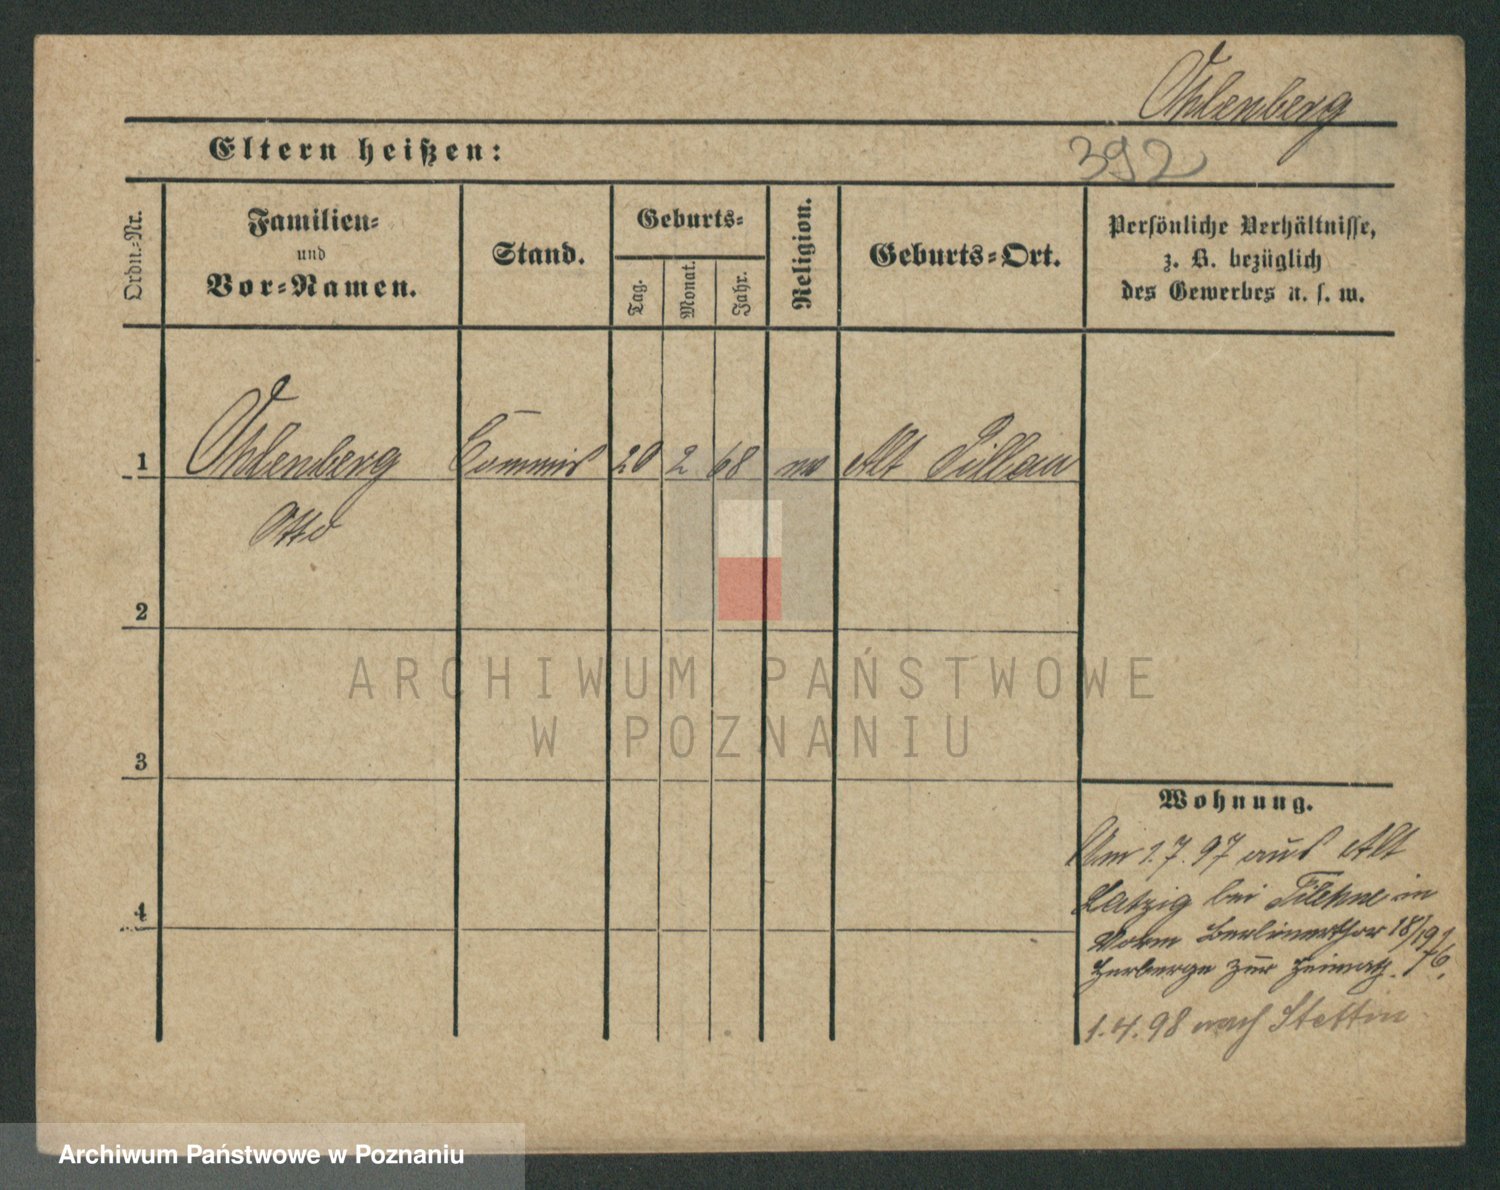 Ohlenberg
Eltern heißen:
392
Ordn.-Nr.
Familien-
und
Vor-Namen.
Stand.
Geburts-
Tag.
Monat.
Jahr.
Religion.
Geburts-Ort.
Persönliche Verhältnisse,
z. B. bezüglich
des Gewerbes u. s. w.
1 Ohlenberg Commis 20 2 68 ev Alt Pillau
Otto
2
3
4
Wohnung.
Am 1.7.97 aus Alt
Latzig bei Filehne in
Vorm Berlinerthor 18/19
Herberge zur Heimath.
1.4.98 nach Stettin
ARCHIWUM PAŃSTWOWE
W POZNANIU
Archiwum Państwowe w Poznaniu